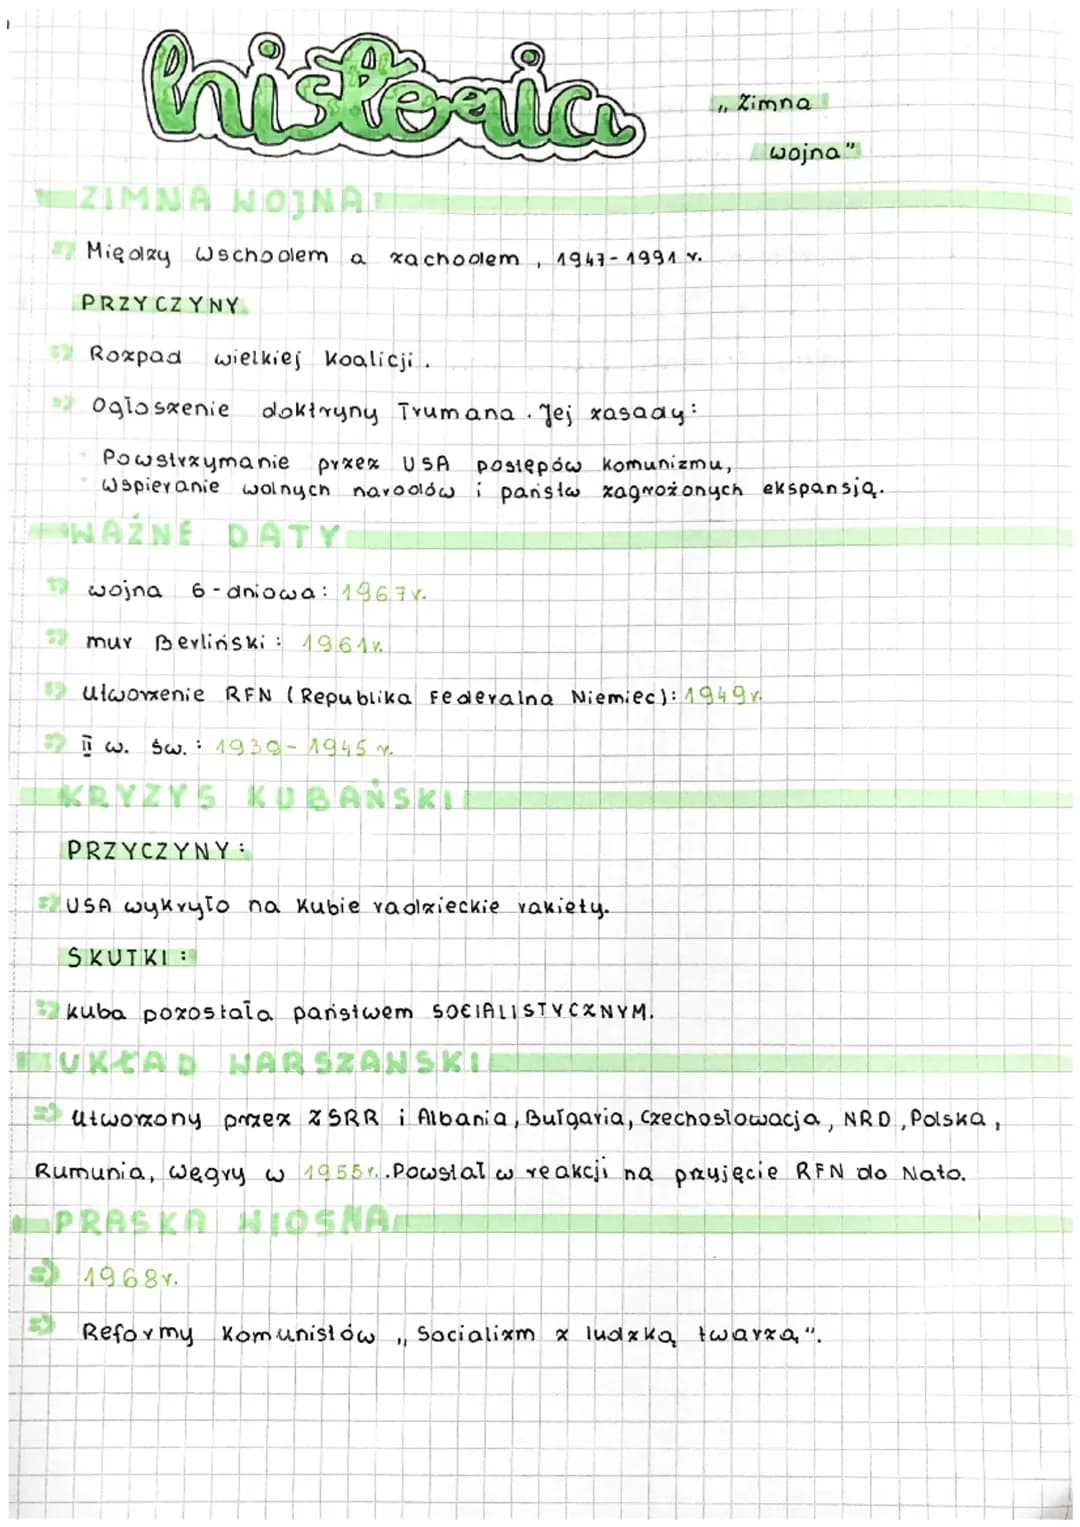 historia
„Zimna
wojna"
ZIMNA WOJNA
=> Między Wschodem a zachodem, 1947-1991 r.
PRZYCZYNY
=> Rozpad wielkiej koalicji.
=> Ogłoszenie doktryny Trumana. Jej zasady:
· Powstrzymanie przez USA postępów komunizmu,
· wspieranie wolnych narodów i państw zagrożonych ekspansją.
WAŻNE DATY
=> wojna 6-dniowa: 1967r.
=> mur Berliński: 1961r.
=> utworzenie RFN (Republika Federalna Niemiec): 1949r.
=> II w. św.: 1939-1945 r.
KRYZYS KUBAŃSKI
PRZYCZYNY:
=> USA wykryło na Kubie radzieckie rakiety.
SKUTKI:
=> kuba pozostała państwem SOCIALISTYCZNYM.
UKŁAD WARSZAWSKI
=> Utworzony przez ZSRR i Albania, Bułgaria, Czechosłowacja, NRD, Polska,
Rumunia, Węgry w 1955r. .Powstał w reakcji na przyjęcie RFN do Nato.
PRASKA WIOSNA
=> 1968r.
=> Reformy Komunistów „Socializm z ludzką twarzą".